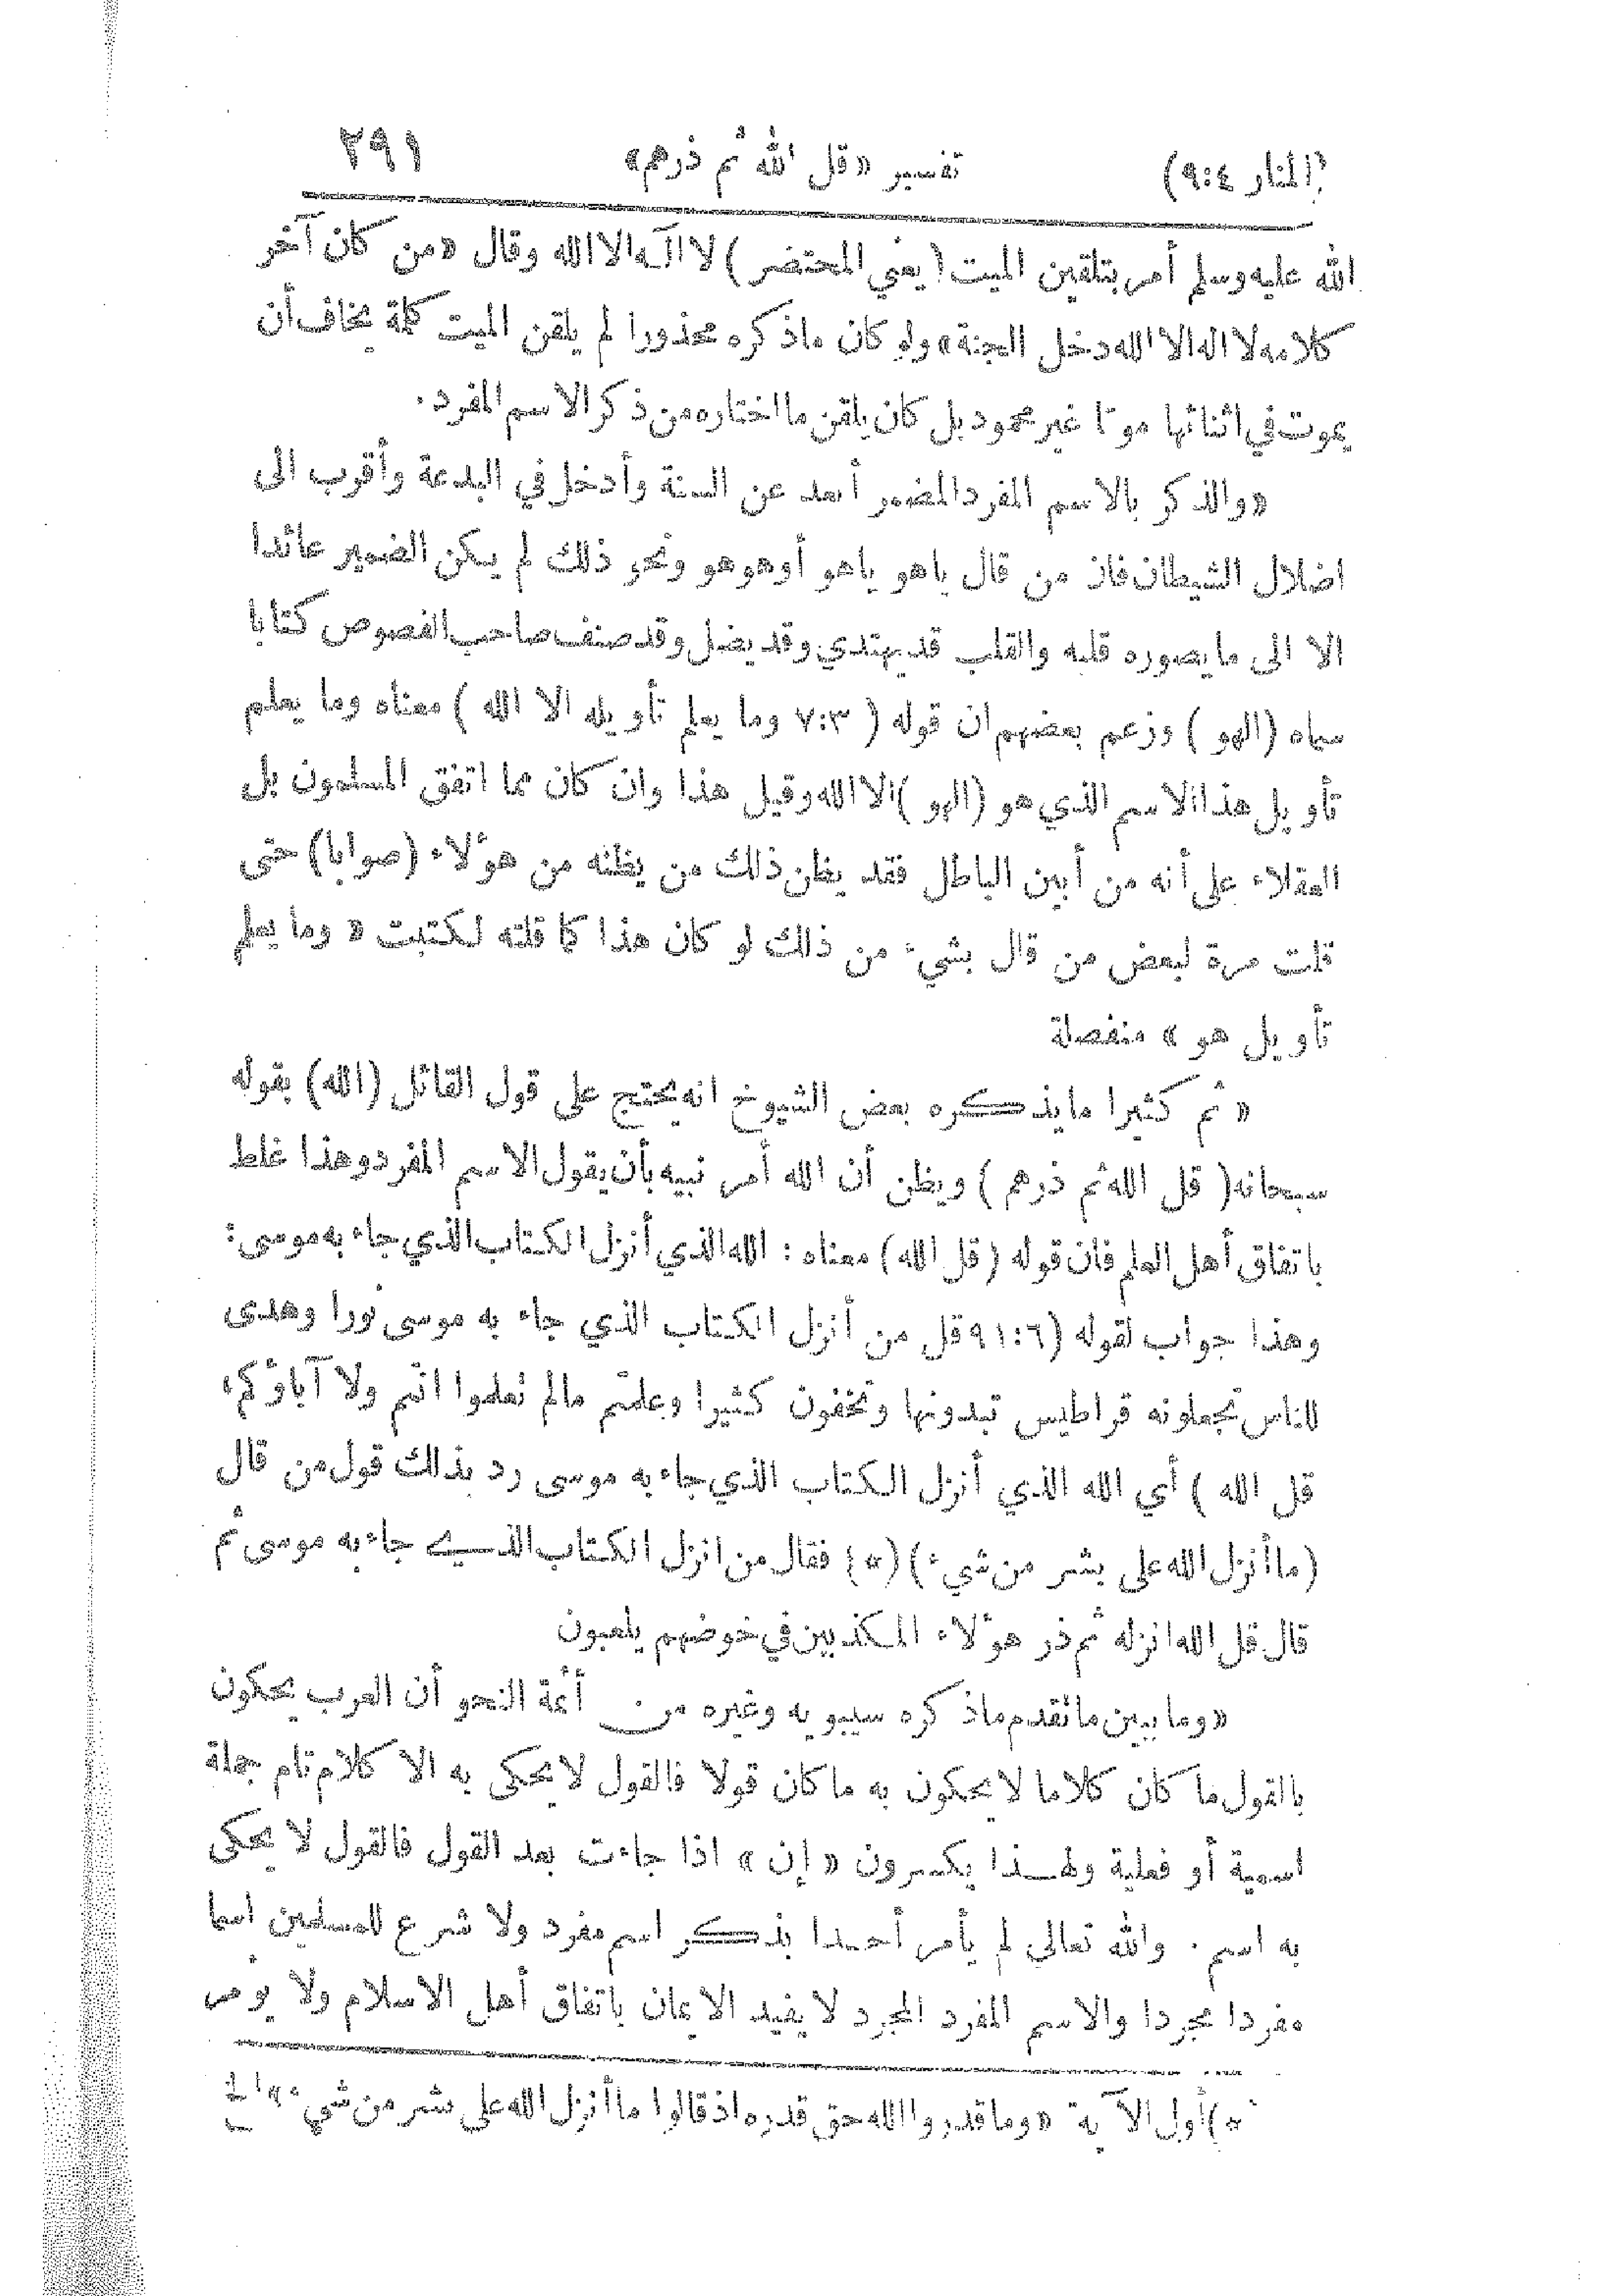 (المنار ٩:٤) تفسير «قل الله ثم ذرهم» ٢٩١
الله عليه وسلم أمر بتلقين الميت (يعني المحتضر) لا اله الا الله وقال «من كان آخر
كلامه لا اله الا الله دخل الجنة» ولو كان ما ذكره محذورا لم يلقن الميت كلمة يخاف أن
يموت في اثنائها موتا غير محمود بل كان يلقن ما اختاره من ذكر الاسم المفرد.
«والذكر بالاسم المفرد المضمر أبعد عن السنة وأدخل في البدعة وأقرب الى
اضلال الشيطان فان من قال ياهو ياهو أو هو هو ونحو ذلك لم يكن الضمير عائدا
الا الى ما يصوره قلبه والقلب قد يهتدي وقد يضل وقد صنف صاحب الفصوص كتابا
سماه (الهو) وزعم بعضهم ان قوله (٧:٣ وما يعلم تأويله الا الله) معناه وما يعلم
تأويل هذا الاسم الذي هو (الهو) الا الله وقيل هذا وان كان مما اتفق المسلمون بل
العقلاء على أنه من أبين الباطل فقد يظن ذلك من يظنه من هؤلاء (صوابا) حتى
قلت مرة لبعض من قال بشيء من ذلك لو كان هذا كما قلته لكتبت «وما يعلم
تأويل هو» منفصلة
«ثم كثيرا ما يذكره بعض الشيوخ انه يحتج على قول القائل (الله) بقوله
سبحانه (قل الله ثم ذرهم) ويظن أن الله أمر نبيه بأن يقول الاسم المفرد وهذا غلط
باتفاق أهل العلم فان قوله (قل الله) معناه: الله الذي أنزل الكتاب الذي جاء به موسى:
وهذا جواب لقوله (٩١:٦ قل من أنزل الكتاب الذي جاء به موسى نورا وهدى
للناس تجعلونه قراطيس تبدونها وتخفون كثيرا وعلمتم مالم تعلموا انتم ولا آباؤكم،
قل الله) أي الله الذي أنزل الكتاب الذي جاء به موسى رد بذلك قول من قال
(ما أنزل الله على بشر من شيء) (*) فقال من انزل الكتاب الذي جاء به موسى ثم
قال قل الله انزله ثم ذر هؤلاء المكذبين في خوضهم يلعبون
«وما يبين ما تقدم ما ذكره سيبويه وغيره من أئمة النحو أن العرب يحكون
بالقول ما كان كلاما لا يحكون به ما كان قولا فالقول لا يحكى به الا كلام تام جملة
اسمية أو فعلية ولهذا يكسرون «إن» اذا جاءت بعد القول فالقول لا يحكى
به اسم. والله تعالى لم يأمر أحدا بذكر اسم مفرد ولا شرع للمسلمين اسما
مفردا مجردا والاسم المفرد المجرد لا يفيد الايمان باتفاق أهل الاسلام ولا يؤمر
*) أول الآية «وما قدروا الله حق قدره اذ قالوا ما أنزل الله على بشر من شيء» الخ